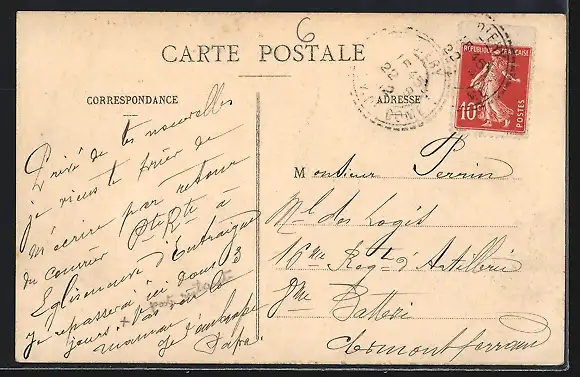 6
CARTE POSTALE
CORRESPONDANCE
ADRESSE
REPUBLIQUE FRANÇAISE
10
POSTES
Privé de tes nouvelles
je viens te prier de
m'écrire par retour
du courrier Pte Rte à
Egliseneuve d'Entraigues
Je repasserai ici dans 3
jours.
maman
Je t'embrasse
Papa
Monsieur Perrin
Ml des Logis
16me Regt d'Artillerie
Batterie
Clermont Ferrand